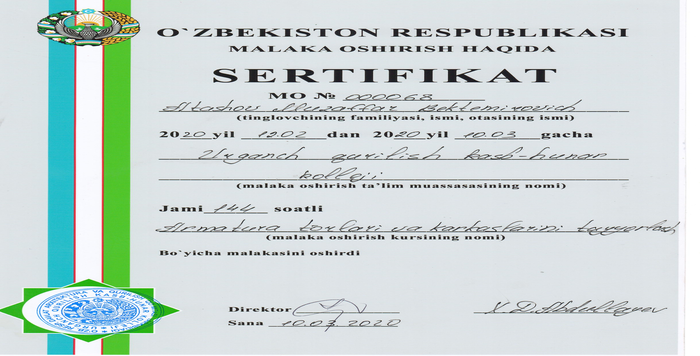 O`ZBEKISTON RESPUBLIKASI
MALAKA OSHIRISH HAQIDA
SERTIFIKAT
MO № 000068
Atashov Muzaffar Bektemirovich
(tinglovchining familiyasi, ismi, otasining ismi)
2020 yil 19.02 dan 2020 yil 10.03 gacha
Urganch qurilish kasb-hunar
kolleji
(malaka oshirish ta'lim muassasasining nomi)
Jami 144 soatli
Armatura torlari va karkaslarini tayyorlash
(malaka oshirish kursining nomi)
Bo'yicha malakasini oshirdi
Direktor X.D.Abdullayev
Sana 10.03.2020